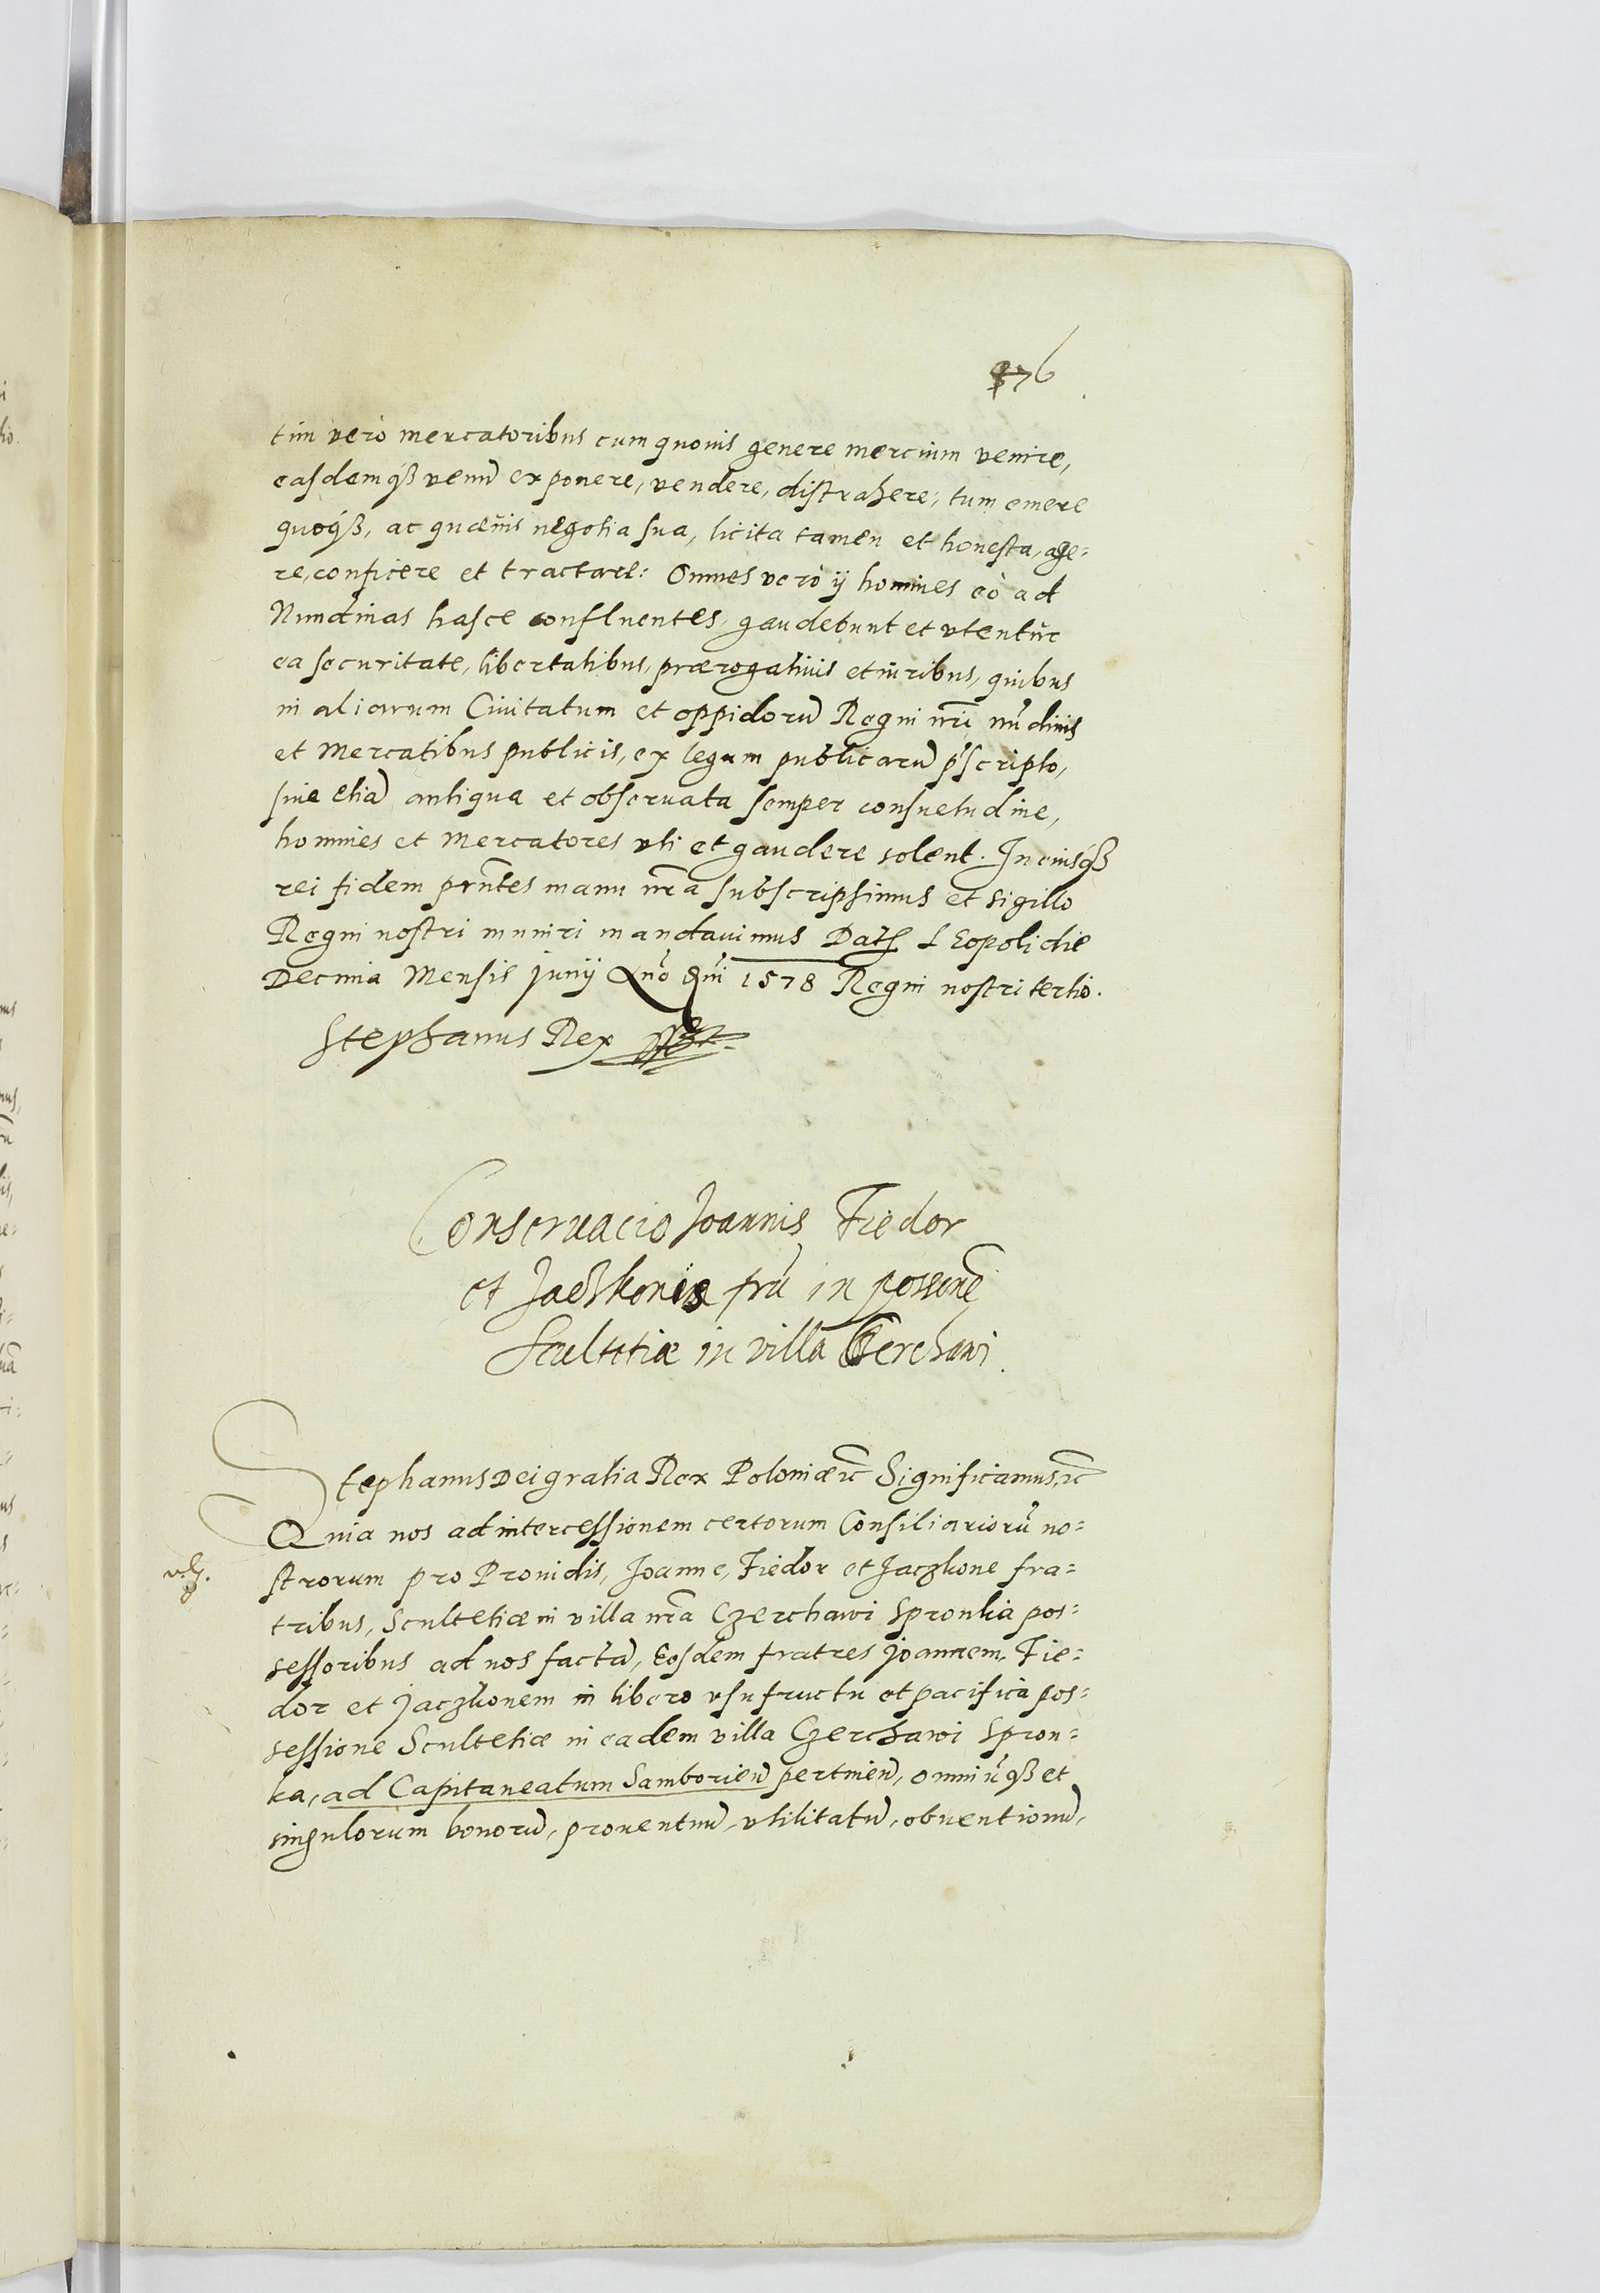 376
tim verò mercatoribus cum quouis genere mercium venire,
easdemqз venũ exponere, vendere, distrahere, tum emere
quoqз, ac quæuis negotia sua, licita tamen et honesta, age=
re, conficere et tractare: Omnes verò ij homines eò ad
Nundinas hasce confluentes, gaudebunt et vtentur
ea securitate, libertatibus, prærogatiuis et iuribus, quibus
in aliarum Ciuitatum et oppidorũ Regni nri nũdinis
et mercatibus publicis, ex legum publicarũ pscripto,
siue etiã antiqua et obseruata semper consuetudine,
homines et mercatores vti et gaudere solent. In cuiusqз
rei fidem pñtes manu nra subscripsimus et sigillo
Regni nostri muniri mandauimus Datß Leopoli die
Decima Mensis junij Año Dñi 1578 Regni nostri tertio.
Stephanus Rex sst
Conseruacio Joannis Fiedor
et Jaczkonis frũ in possonẽ
Scultetiæ in villa Czerchawi
Stephanus Dei gratia Rex Poloniæ ꝛc Significamus, ꝛc
Quia nos ad intercessionem certorum Consiliariorũ no=
strorum pro Prouidis, Joanne, Fiedor et Jaczkone fra=
tribus, scultetiæ in villa nra Czerchawi Spronka pos=
sessoribus ad nos factã, Eosdem fratres joannem, Fie=
dor et jaczkonem in libero vsufructu et pacifica pos=
sessione Scultetiæ in eadem villa Czerchawi Spron=
ka, ad Capitaneatum Samborieñ pertineñ, omniũqз et
singulorum bonorũ, prouentuũ, vtilitatũ, obuentionũ,